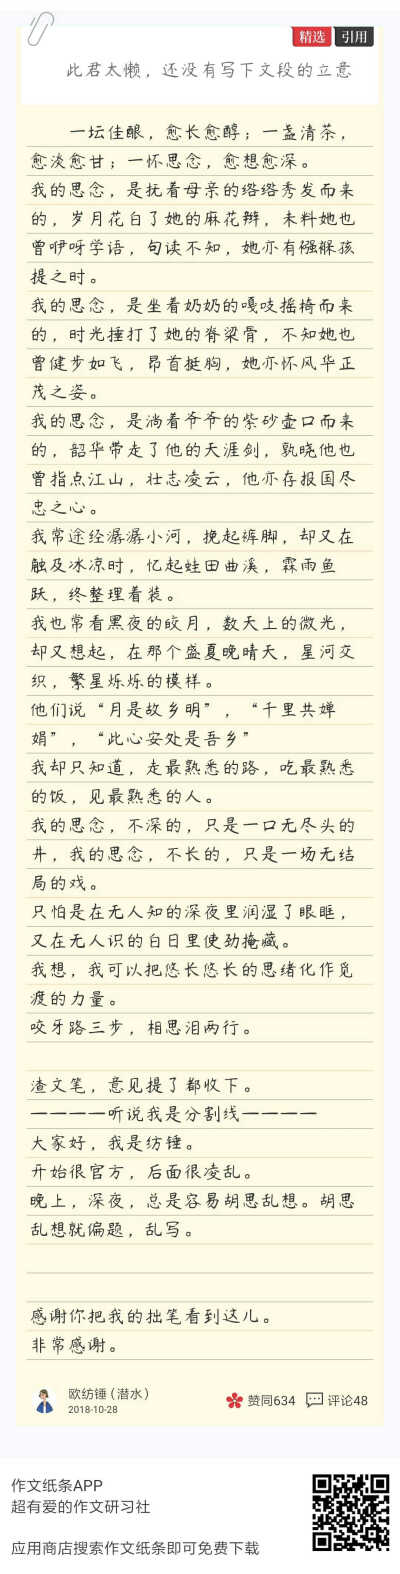 精选 引用
此君太懒，还没有写下文段的立意
一坛佳酿，愈长愈醇；一盏清茶，
愈淡愈甘；一怀思念，愈想愈深。
我的思念，是抚着母亲的绺绺秀发而来
的，岁月花白了她的麻花辫，未料她也
曾咿呀学语，句读不知，她亦有襁褓孩
提之时。
我的思念，是坐着奶奶的嘎吱摇椅而来
的，时光捶打了她的脊梁骨，不知她也
曾健步如飞，昂首挺胸，她亦怀风华正
茂之姿。
我的思念，是淌着爷爷的紫砂壶口而来
的，韶华带走了他的天涯剑，孰晓他也
曾指点江山，壮志凌云，他亦存报国尽
忠之心。
我常途经潺潺小河，挽起裤脚，却又在
触及冰凉时，忆起蛙田曲溪，霖雨鱼
跃，终整理着装。
我也常看黑夜的皎月，数天上的微光，
却又想起，在那个盛夏晚晴天，星河交
织，繁星烁烁的模样。
他们说“月是故乡明”，“千里共婵
娟”，“此心安处是吾乡”
我却只知道，走最熟悉的路，吃最熟悉
的饭，见最熟悉的人。
我的思念，不深的，只是一口无尽头的
井，我的思念，不长的，只是一场无结
局的戏。
只怕是在无人知的深夜里润湿了眼眶，
又在无人识的白日里使劲掩藏。
我想，我可以把悠长悠长的思绪化作觅
渡的力量。
咬牙路三步，相思泪两行。
渣文笔，意见提了都收下。
————听说我是分割线————
大家好，我是纺锤。
开始很官方，后面很凌乱。
晚上，深夜，总是容易胡思乱想。胡思
乱想就偏题，乱写。
感谢你把我的拙笔看到这儿。
非常感谢。
欧纺锤（潜水）
2018-10-28
赞同634 评论48
作文纸条APP
超有爱的作文研习社
应用商店搜索作文纸条即可免费下载